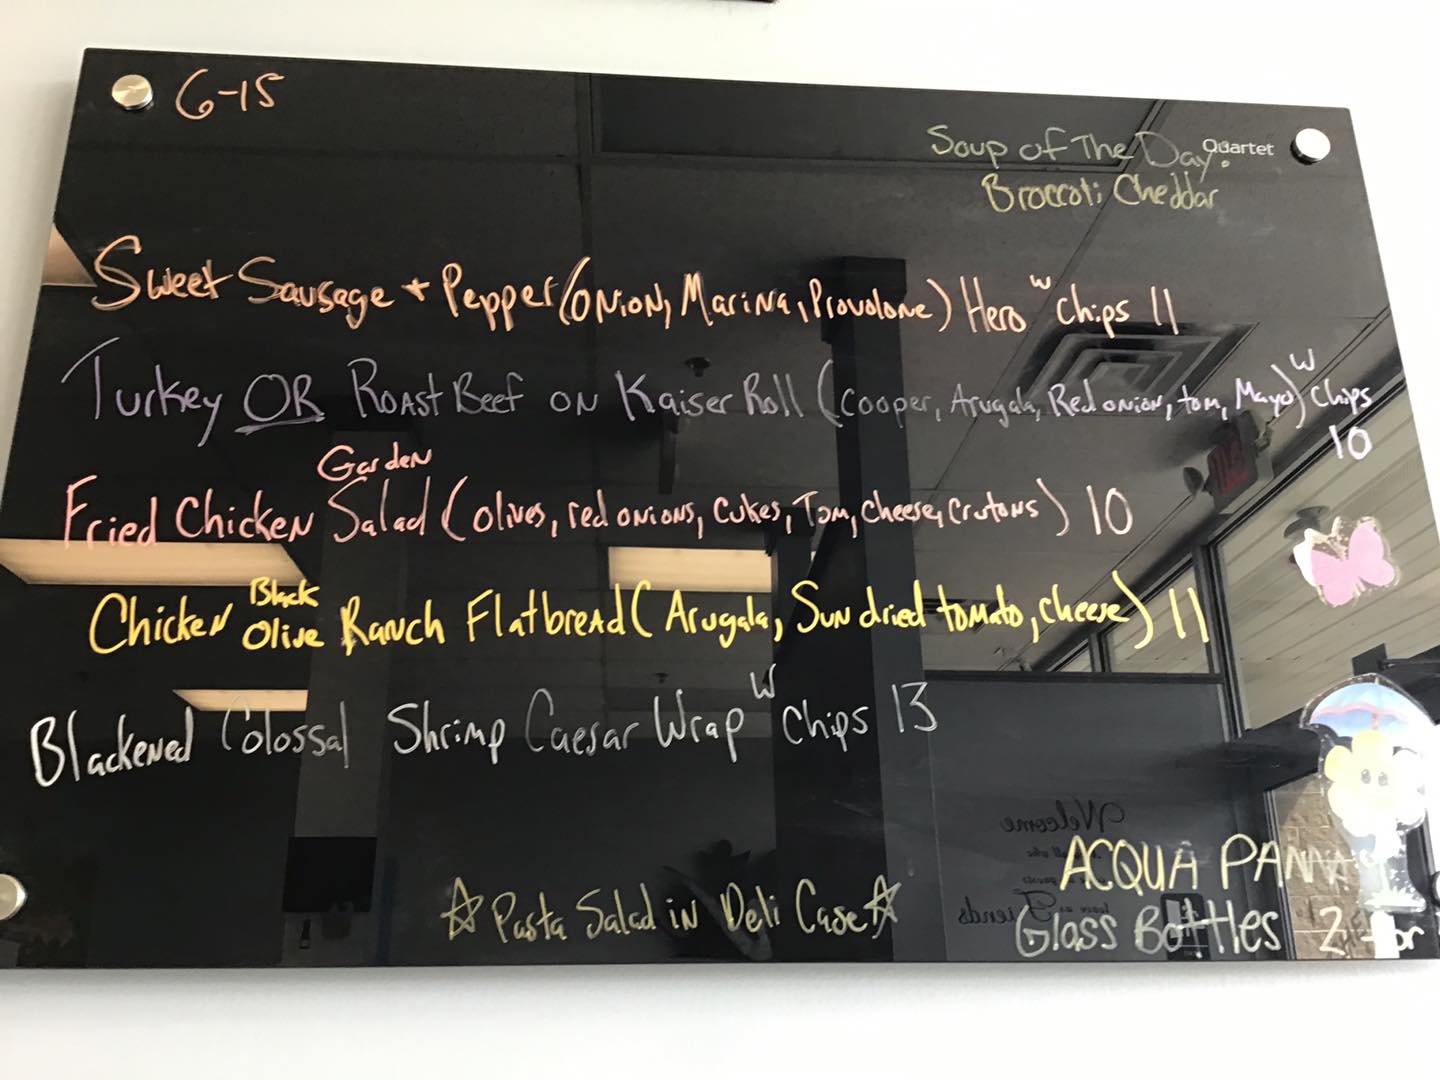 6-15
Quartet
Soup of The Day:
Broccoli Cheddar
Sweet Sausage + Pepper (Onion, Marina, Provolone) Hero w Chips 11
Turkey OR Roast Beef on Kaiser Roll (Cooper, Arugala, Red onion, tom, Mayo) w Chips
10
Fried Chicken Garden Salad (olives, red onions, cukes, Tom, cheese, crutons) 10
Chicken Black Olive Ranch Flatbread (Arugala, Sun dried tomato, cheese) 11
Blackened Colossal Shrimp Caesar Wrap w Chips 13
Welcome
Friends
ACQUA PANNA
Glass Bottles 2 for
☆ Pasta Salad in Deli Case ☆